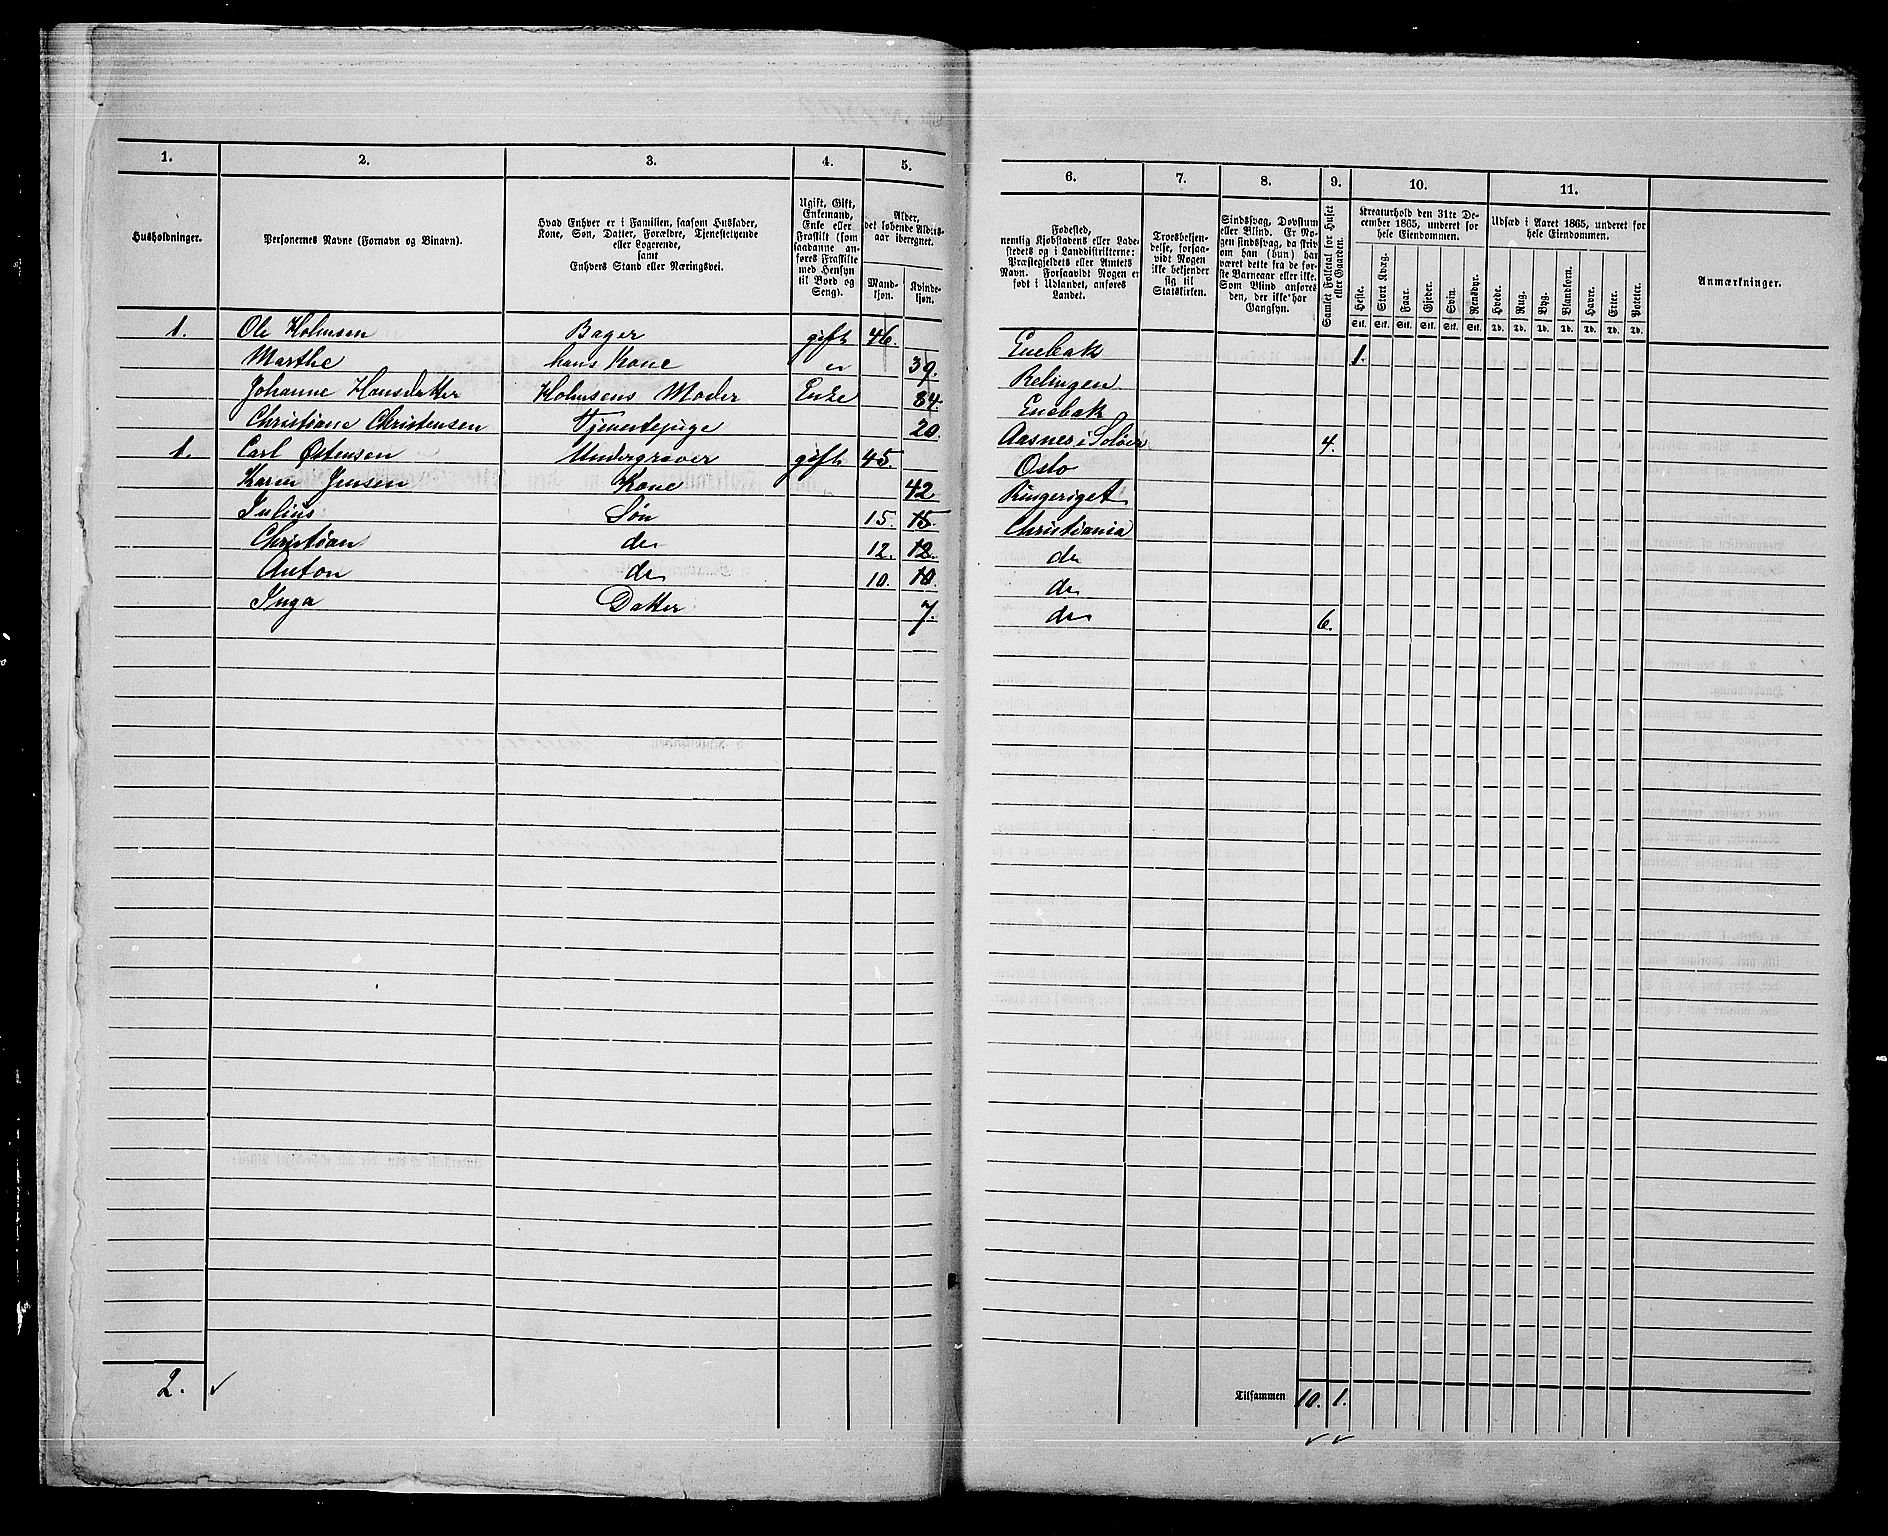 1. 2. 3. 4. 5. 6. 7. 8. 9. 10. 11.
Husholdninger.
Personernes Navne (Fornavn og Binavn).
Hvad Enhver er i Familien, saasom Husfader,
Kone, Søn, Datter, Forældre, Tjenestetyende
eller Logerende,
samt
Enhvers Stand eller Næringsvei.
Ugift, Gift,
Enkemand,
Enke eller
Fraskilt (som
saadanne an-
føres Fraskilte
med Hensyn
til Bord og
Seng).
Alder,
det løbende Alders-
aar iberegnet.
Mand-
kjøn.
Kvinde-
kjøn.
Fødested,
nemlig Kjøbstadens eller Lade-
stedets og i Landdistrikterne:
Præstegjeldets eller Amtets
Navn. Forsaavidt Nogen er
født i Udlandet, anføres
Landet.
Troesbekjen-
delse, forsaa-
vidt Nogen
ikke bekjender
sig til
Statskirken.
Sindssvag, Døvstum
eller Blind. Er No-
gen sindssvag, da skriv
om han (hun) har
været dette fra de før-
ste Barneaar eller ikke.
Som Blind anføres
den, der ikke har
Gangsyn.
Samlet Folketal for Huset
eller Gaarden.
Kreaturhold den 31te De-
cember 1865, underet for
hele Eiendommen.
Heste. Stort Kvæg. Faar. Gjeder. Svin. Rensdyr.
Stk. Stk. Stk. Stk. Stk. Stk.
Udsæd i Aaret 1865, underet for
hele Eiendommen.
Hvede. Rug. Byg. Blandkorn. Havre. Erter. Poteter.
Td. Td. Td. Td. Td. Td. Td.
Anmærkninger.
1. Ole Holmsen Bager gift 46. Enebak 1.
Marthe hans Kone " 39. Relingen
Johanne Hansdatter Holmsens Moder Enke 84. Enebak
Christiane Christensen Tjenestepige 20. Aasnes i Soløer 4.
1. Carl Østensen Undergraver gift 45. Oslo
Karen Jensen Kone 42 Ringeriget
Julius Søn 15. 15. Christiania
Christian do 12. 12. do
Anton do 10. 10. do
Inga Datter 7. do 6.
2.
Tilsammen 10. 1.